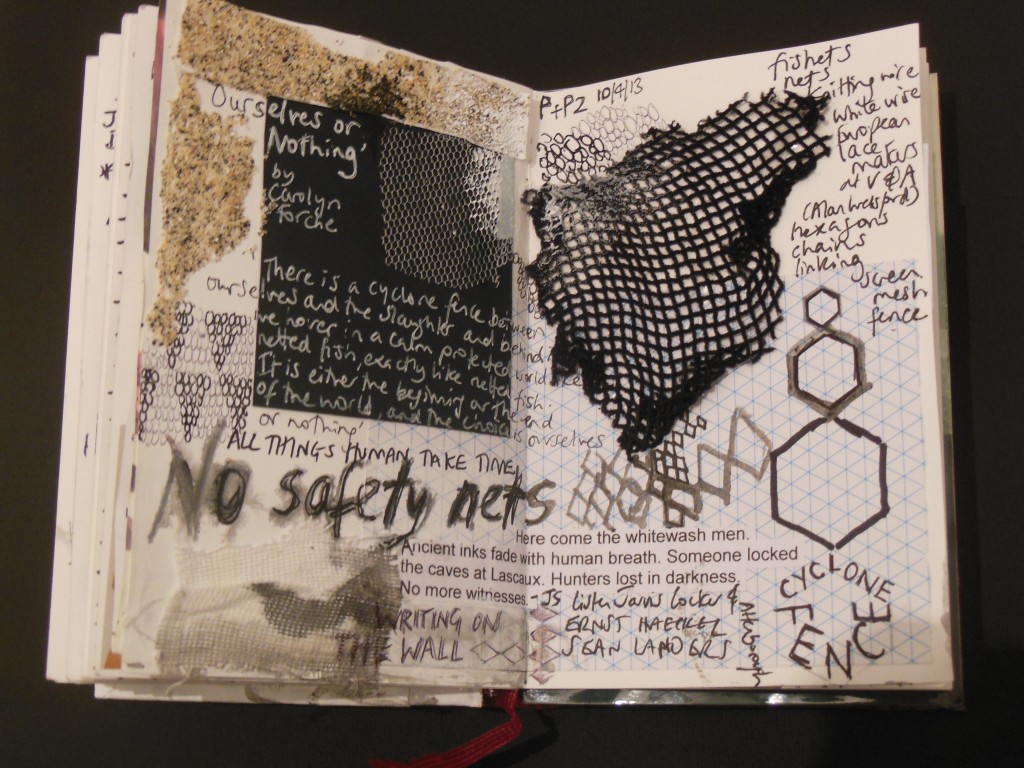 Ourselves or
Nothing'
by
Carolyn
Forche
There is a cyclone fence between
ourselves and the slaughter and behind it
we hover in a calm protected world like
netted fish, exactly like netted fish.
It is either the beginning or the end
of the world, and the choice is ourselves
or nothing'
ALL THINGS HUMAN TAKE TIME,
No safety nets
Here come the whitewash men.
Ancient inks fade with human breath. Someone locked
the caves at Lascaux. Hunters lost in darkness.
No more witnesses. - JS
WRITING ON
THE WALL
Listen Jarvis Cocker &
ERNST HAECKEL
SEAN LANDERS
P+P2 10/4/13
fishnets
nets
knitting wire
white wire
European
lace
makers
at V&A
hexagons
chains
linking
screen
mesh
fence
CYCLONE
FENCE